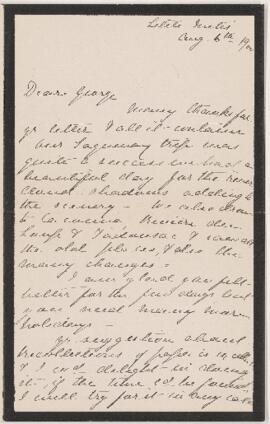 Little Metis
Aug. 6th 19
Dear George
Many thanks for
yr letter & all it contains
Our Saguenay trip was
quite a success we had a
beautiful day for the river
cloud shadows adding to
the scenery - We also drove
to Cacouna Rivière du
Loup & Tadousac & saw all
the old places, & also the
many changes -
I am glad you felt
better for the few days but
you need many more
holidays -
Yr suggestion about
recollections of papa is
& I wd delight in doing
it, if the time cd be found
I will try for it in any case